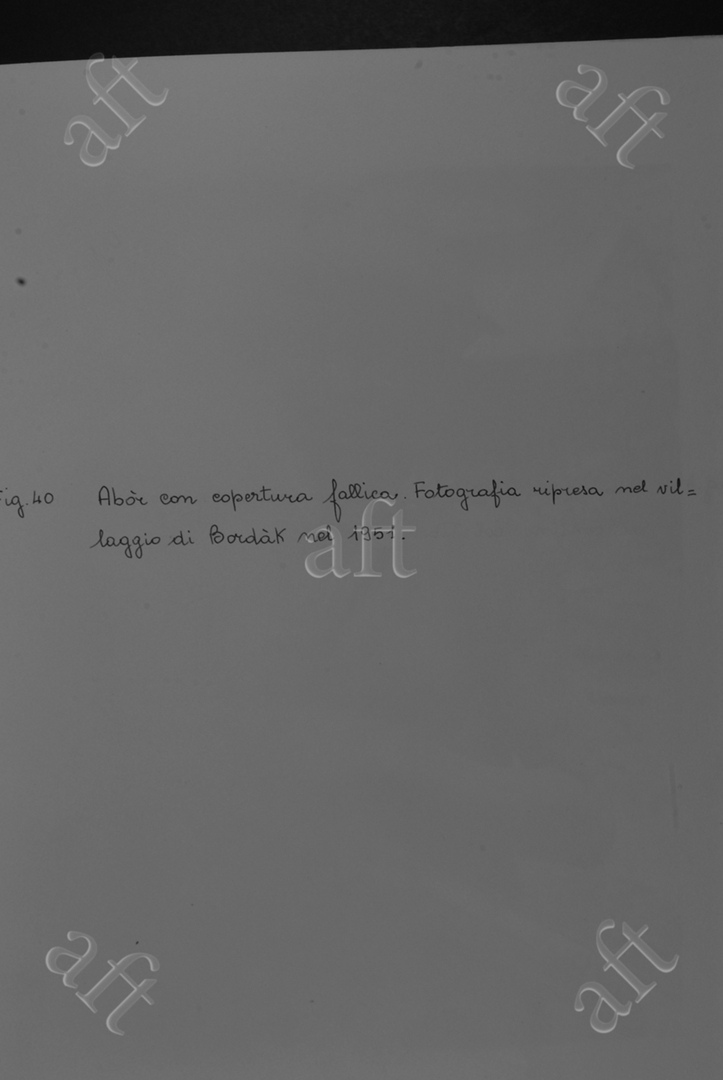 Fig.40 Abòr con copertura fallica. Fotografia ripresa nel vil=
laggio di Bordàk nel 1951.
aft
aft
aft
aft
aft